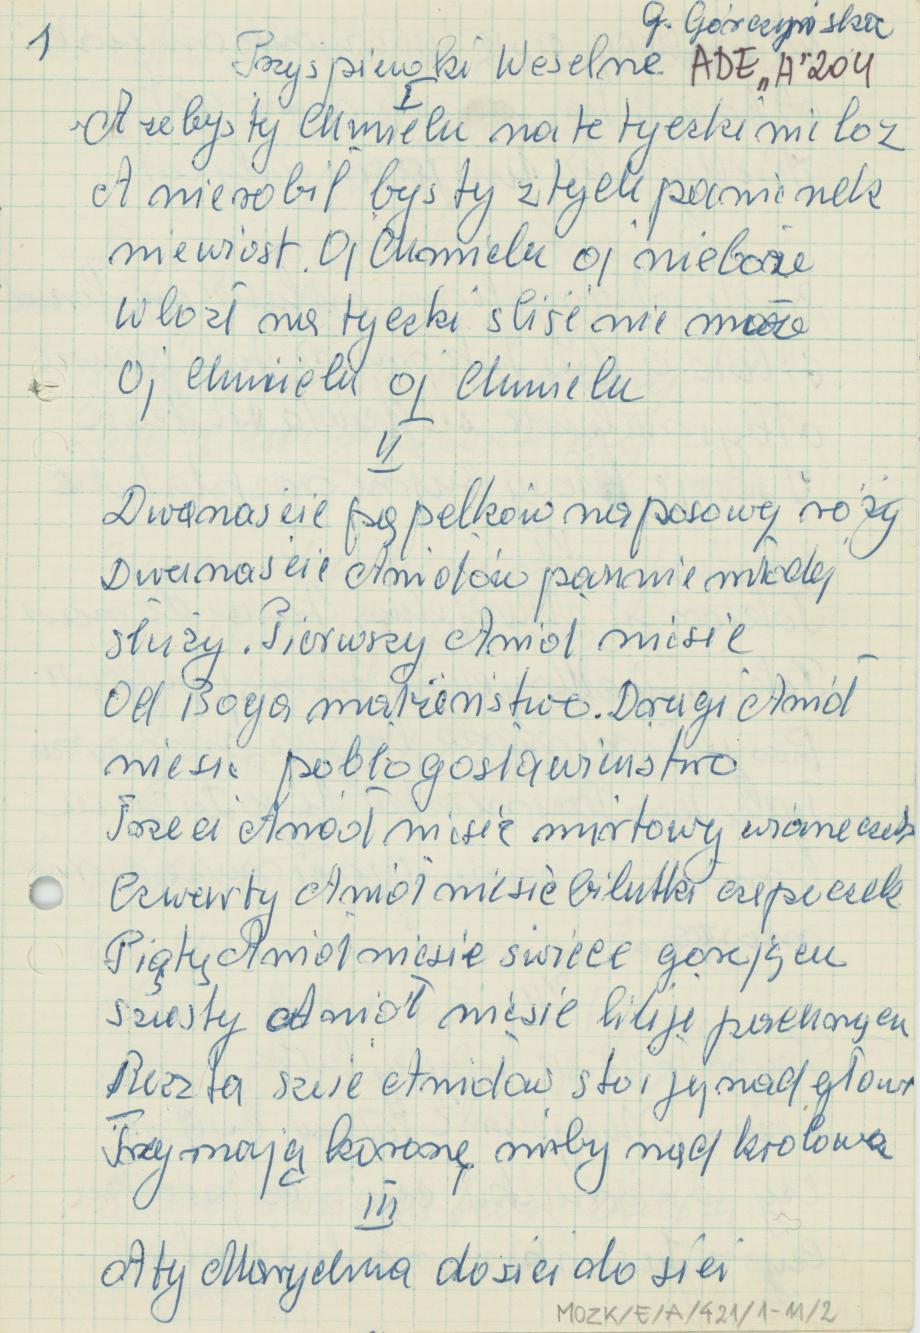 1
G. Górczyńska
Przyspiewki Weselne ADE „A" 204
I
A zebys ty Chmielu na te tyczki nie loz
A nierobił bys ty z tych panienek
niewiost. Oj Chmielu oj nieboże
wlozł na tyczki sliść nie może
Oj Chmielu oj Chmielu
II
Dwanascie pąpelków na posowej róży
Dwanascie Aniołów pannie młodej
służy. Pierwszy Anioł niesie
Od Boga małżeństwo. Drugi Anioł
niesie pobłogosławieństwo
Trzeci Anioł niesie mirtowy wianeczek
Czwarty Anioł niesie bilutki czepeczek
Piąty Anioł niesie świece gorejącu
Szusty Anioł niesie lilije pachnącu
Reszta sześć Aniołów stoi jej nad głowu
Trzymają koronę niby nad krolowa
III
A ty Marychna dosieidosiei
MOZK/E/A/421/1-11/2